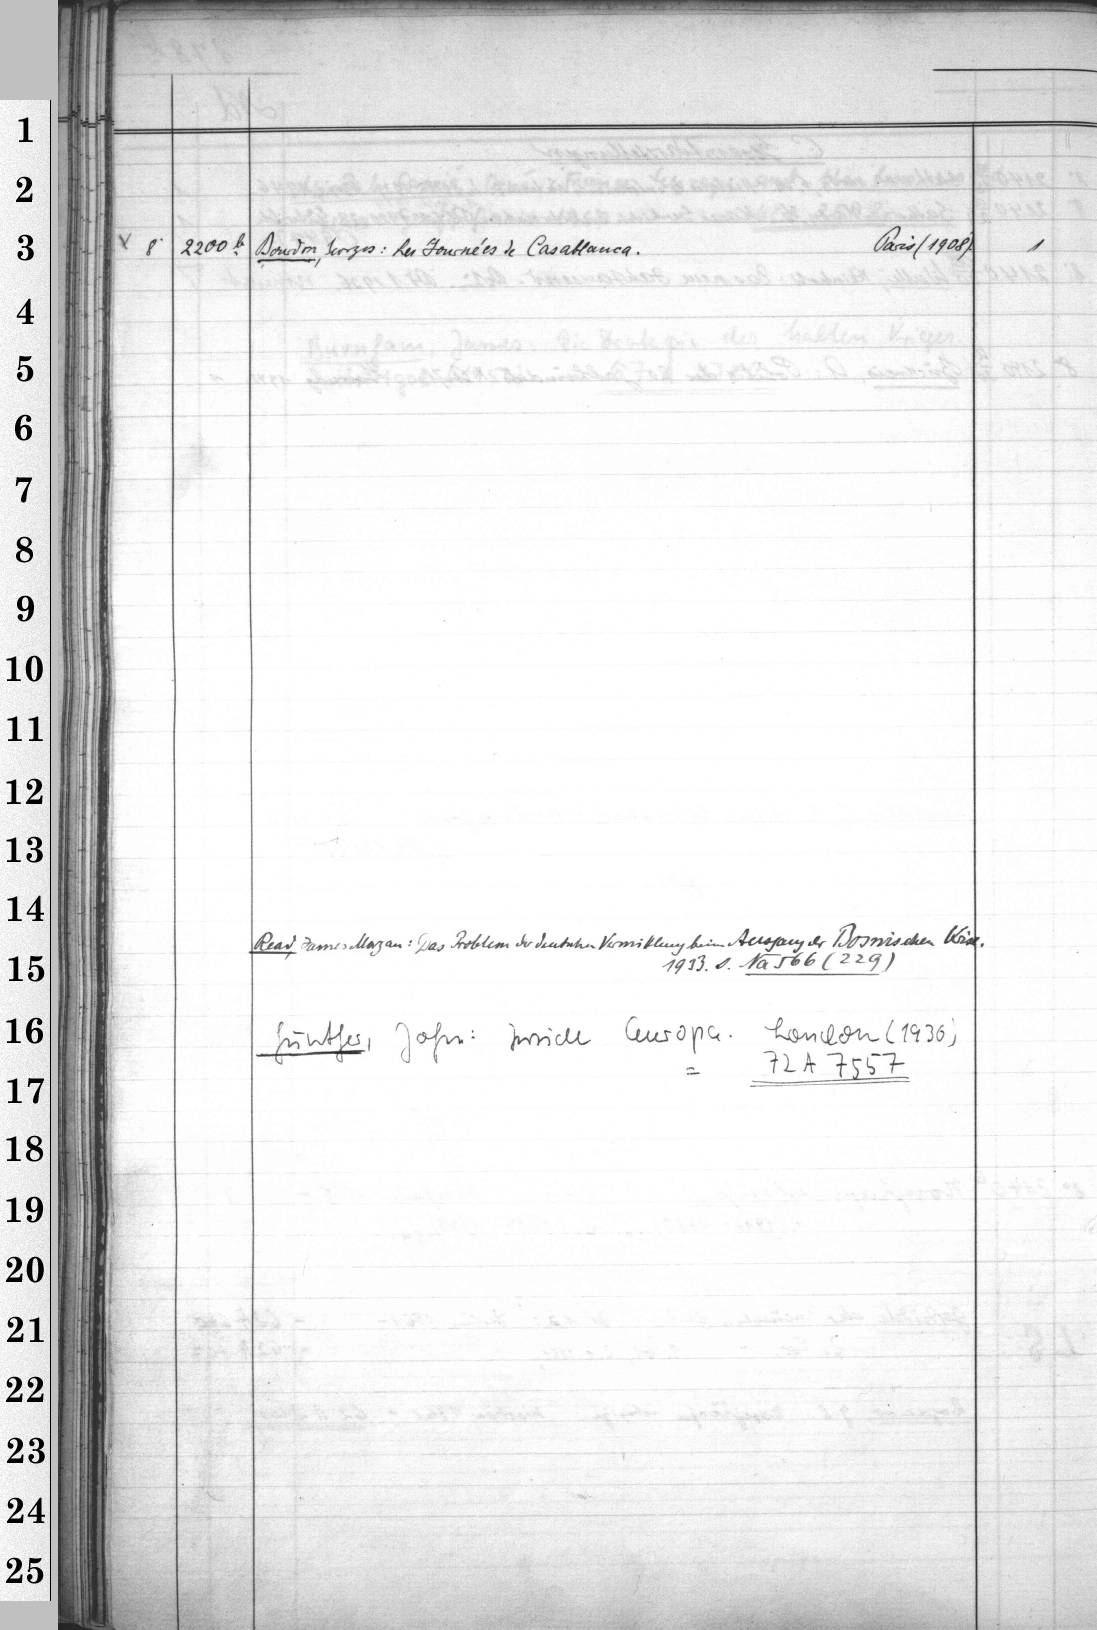 1
2
3
x 8° 2200 b Bourdon, Georges: Les Journées de Casablanca. Paris (1908). 1
4
5
6
7
8
9
10
11
12
13
14
Read, James Morgan: Das Problem der deutschen Vermittlung beim Ausgang der Bosnischen Krise.
15
1933. s. Na 566 (229)
16
Günther, John: Inside Europa. London (1936)
= 72 A 7557
17
18
19
20
21
22
23
24
25